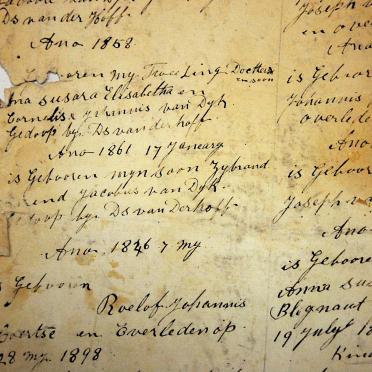 Ds van der Hoff
Ano 1858
oren my Twee Ling Dochter
en soon
na susara Elisabetha en
Cornelis Johannis van Dyk
Gedoop by Ds van der hoff
Ano 1861 17 Janeary
is Gebooren myn soon Zybrand
end Jacobus van Dyk
doop by Ds van Derhoff
Ano 18 6 7 my
Gebooren
Roelof Johannis
Coertse en Overleden op
28 my 1898
Joseph
en ove
Ano
is Geboor
Johannis
overlede
Ano
is Geboor
Joseph
Ano
is Geboore
Anna su
Blignaut
19 July 18